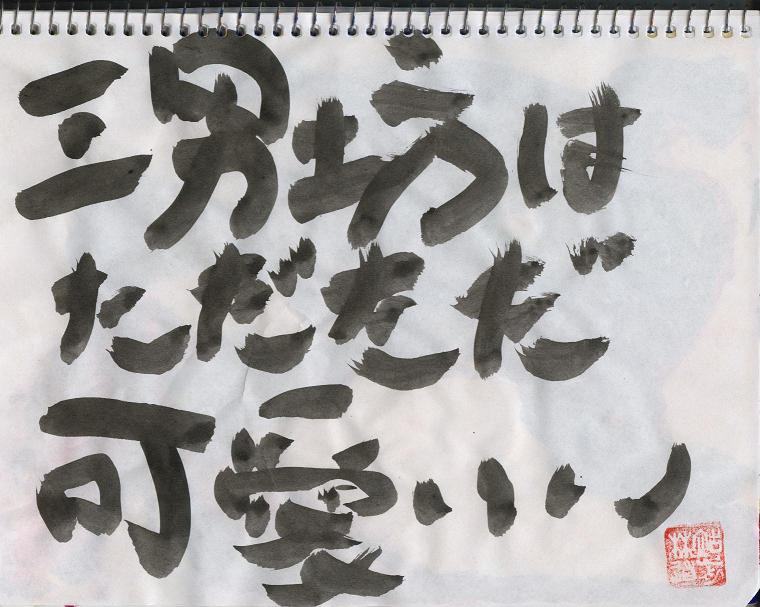 三男坊は
ただただ
可愛いい